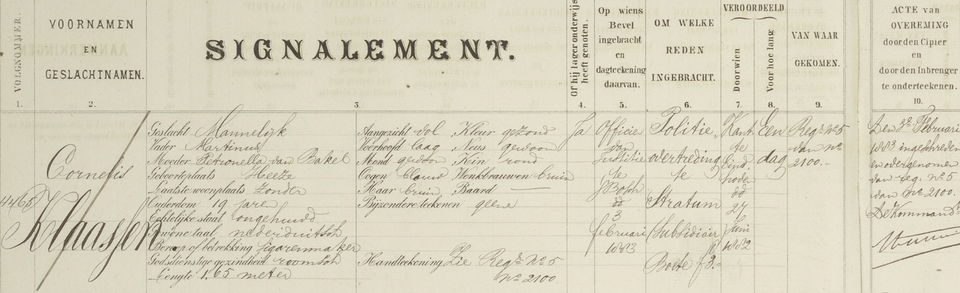 VOLGNOMMER.
VOORNAMEN
EN
GESLACHTNAMEN.
SIGNALEMENT.
Of hij lager onderwijs heeft genoten.
Op wiens
Bevel
ingebracht
en
dagteekening
daarvan.
OM WELKE
REDEN
INGEBRACHT.
VEROORDEELD
Door wien
Voor hoe lang
VAN WAAR
GEKOMEN.
ACTE van
OVEREMING
door den Cipier
en
door den Inbrenger
te onderteekenen.
1.
2.
3.
4.
5.
6.
7.
8.
9.
10.
4465
Cornelis
Klaassen
Geslacht Mannelijk
Vader Martinus
Moeder Petronella van Bakel
Geboorteplaats Heeze
Laatste woonplaats zonder
Ouderdom 19 jaren
Echtelijke staat ongehuwd
Gewone taal nederduitsch
Beroep of betrekking Sigarenmaker
Godsdienstige gezindheid roomsch
Lengte 1.65 meter
Aangezicht vol Kleur gezond
Voorhoofd laag Neus gewoon
Mond gewoon Kin rond
Oogen blauw Wenkbrauwen bruin
Haar bruin Baard —
Bijzondere teekenen geene
Handteekening Zie Regr No 5
No 2100
Ja
Officie
van
Justitie
te
d
3
februari
1883
Politie
overtreding
te
Stratum
Subsidiair
Boete f 3.-
Kant.
te
Eind
hoven
dd
27
Juni
1882
Een
dag
Regr No 5
van No
2100.-
Den 22 Februari
1883 ingeschreven
en overgenomen
van reg. No 5
van No 2100.
De Kommand